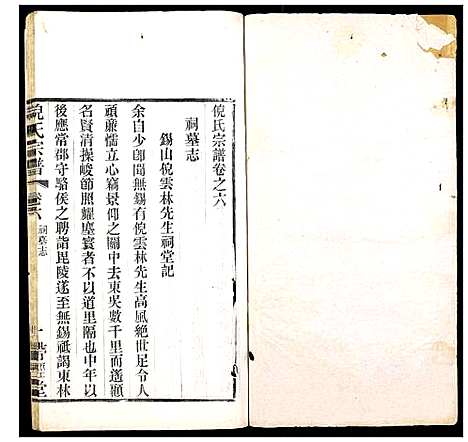 倪氏宗譜卷之六
祠墓志
錫山倪雲林先生祠堂記
余自少卽聞無錫有倪雲林先生高風絶世足令人
頑廉懦立心竊景仰之關中去東吳數千里而遥顧
名賢清操峻節照耀塵寰者不以道里隔也中年以
後應常郡守駱侯之聘詣毘陵遂至無錫祗謁東林
倪氏宗譜
卷六
祠墓志
一
堂